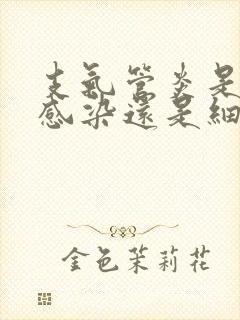 支氣管炎是
感染還是細
金色茉莉花